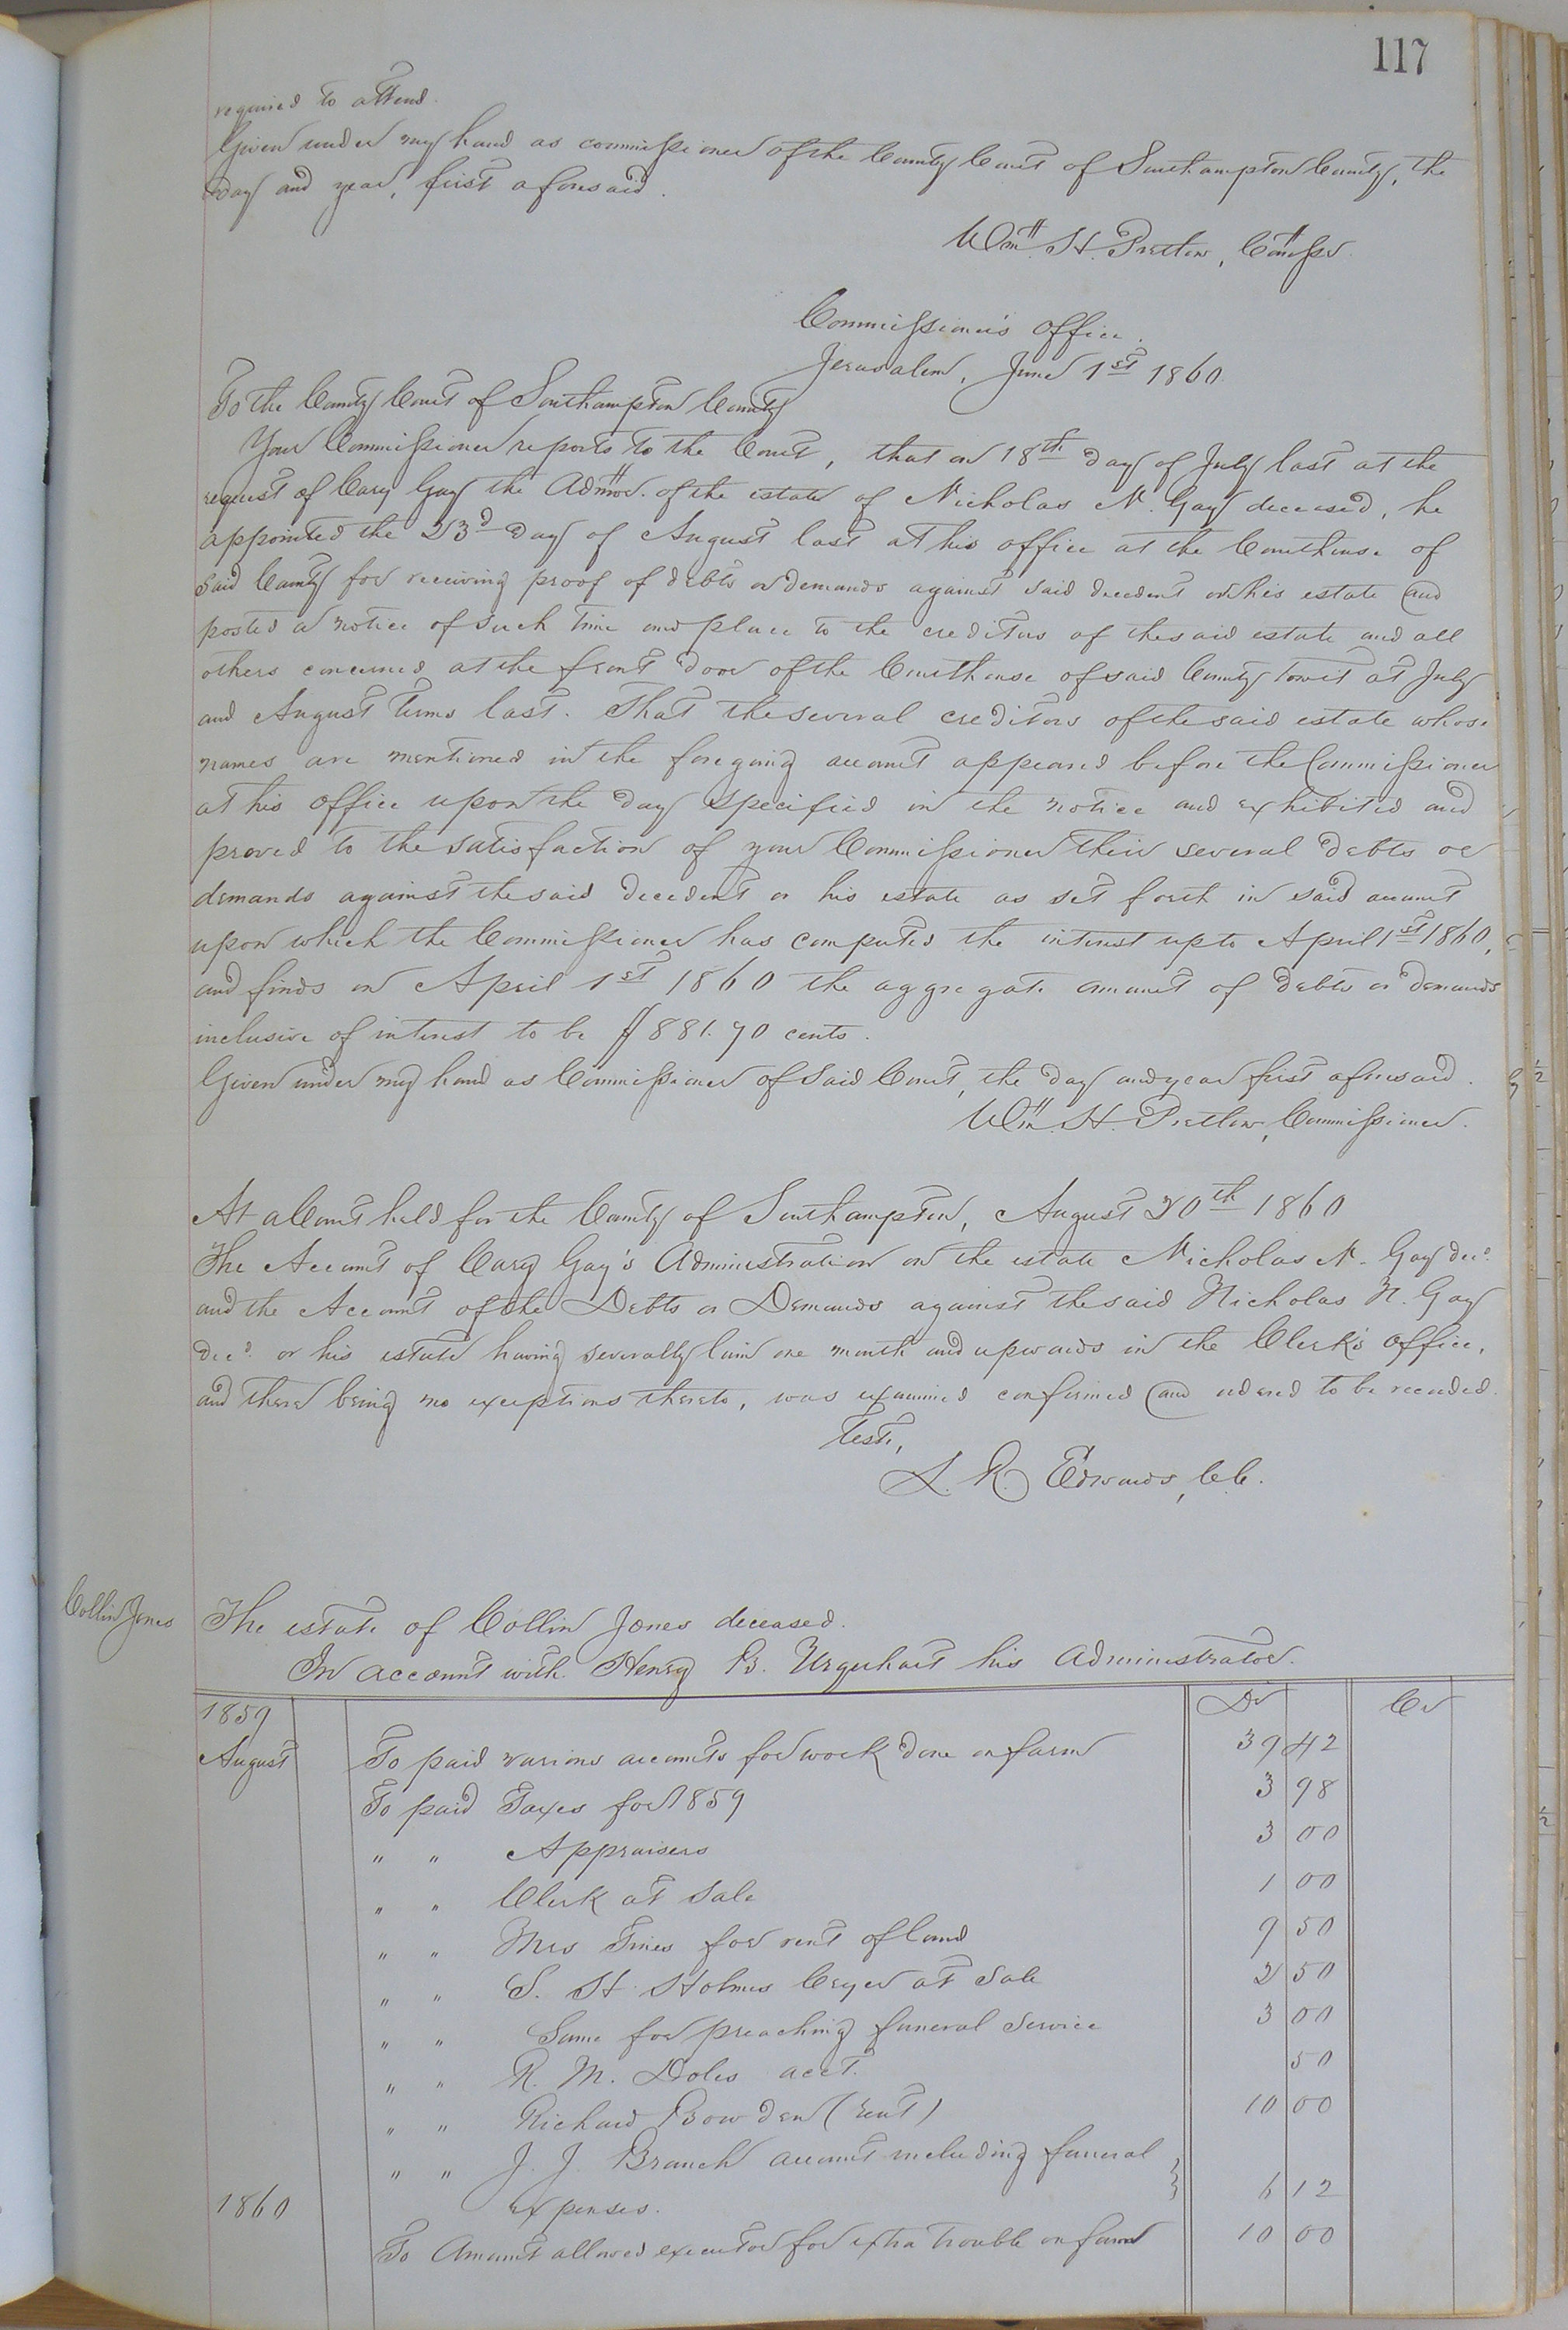 117
required to attend.
Given under my hand as commissioner of the County Court of Southampton County, the
day and year, first aforesaid.
Wm. H. Pretlow, Commissr
Commissioner's office.
Jerusalem, June 1st 1860.
To the County Court of Southampton County
Your Commissioner reports to the Court, that on 18th day of July last at the
request of Cary Gay the Admor. of the estate of Nicholas N. Gay deceased, he
appointed the 23d day of August last at his office at the Courthouse of
said County for receiving proof of debts or demands against said decedent or his estate and
posted a notice of such time and place to the creditors of the said estate and all
others concerned at the front door of the Courthouse of said County towit at July
and August Terms last. That the several creditors of the said estate whose
names are mentioned in the foregoing account appeared before the Commissioner
at his office upon the day specified in the notice and exhibited and
proved to the satisfaction of your Commissioner their several debts or
demands against the said decedent or his estate as set forth in said account
upon which the Commissioner has computed the interest up to April 1st 1860,
and finds on April 1st 1860 the aggregate amount of debts or demands
inclusive of interest to be $881.70 cents.
Given under my hand as Commissioner of said Court, the day and year first aforesaid.
Wm. H. Pretlow, Commissioner.
At a Court held for the County of Southampton, August 20th 1860
The Account of Cary Gay's Administration on the estate Nicholas N. Gay decd.
and the Account of the Debts or Demands against the said Nicholas N. Gay
decd. or his estate having severally lain one month and upwards in the Clerk's office,
and there being no exceptions thereto, was examined confirmed and ordered to be recorded.
Teste,
L. R. Edwards, C.C.
Collin Jones
The estate of Collin Jones deceased.
In account with Henry B. Urquhart his Administrator.
1859 Dr Cr
August To paid various accounts for work done on farm 39 42
To paid Taxes for 1859 3 98
" " Appraisers 3 00
" " Clerk at Sale 1 00
" " Mrs for rent of land 9 50
" " S. H. Holmes Cryer at Sale 2 50
" " Same for preaching funeral service 3 00
" " R. M. Doles acct. 50
" " Richard Bowden (rent) 10 00
" " J. J. Branch account including funeral
1860 expenses. 6 12
To Amount allowed executor for extra trouble on farm 10 00